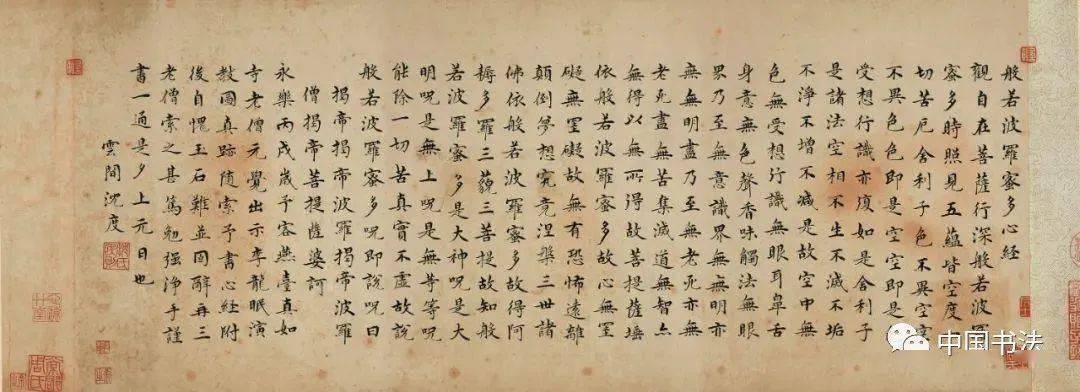 般若波羅蜜多心經
觀自在菩薩行深般若波羅
蜜多時照見五蘊皆空度一
切苦厄舍利子色不異空空
不異色色即是空空即是
受想行識亦復如是舍利子
是諸法空相不生不滅不垢
不淨不增不減是故空中無
色無受想行識無眼耳鼻舌
身意無色聲香味觸法無眼
界乃至無意識界無無明亦
無無明盡乃至無老死亦無
老死盡無苦集滅道無智亦
無得以無所得故菩提薩埵
依般若波羅蜜多故心無罣
礙無罣礙故無有恐怖遠離
顛倒夢想究竟涅槃三世諸
佛依般若波羅蜜多故得阿
耨多羅三藐三菩提故知般
若波羅蜜多是大神呪是大
明呪是無上呪是無等等呪
能除一切苦真實不虛故說
般若波羅蜜多呪即說呪曰
揭帝揭帝波羅揭帝波羅
僧揭帝菩提薩婆訶
永樂丙戌歲予客燕臺真如
寺老僧元覺出示李龍眠演
教圖真跡随索予書心經附
後自愧玉石難並固辭再三
老僧索之甚篤勉强浄手謹
書一通是夕上元日也
雲間沈度
中国书法